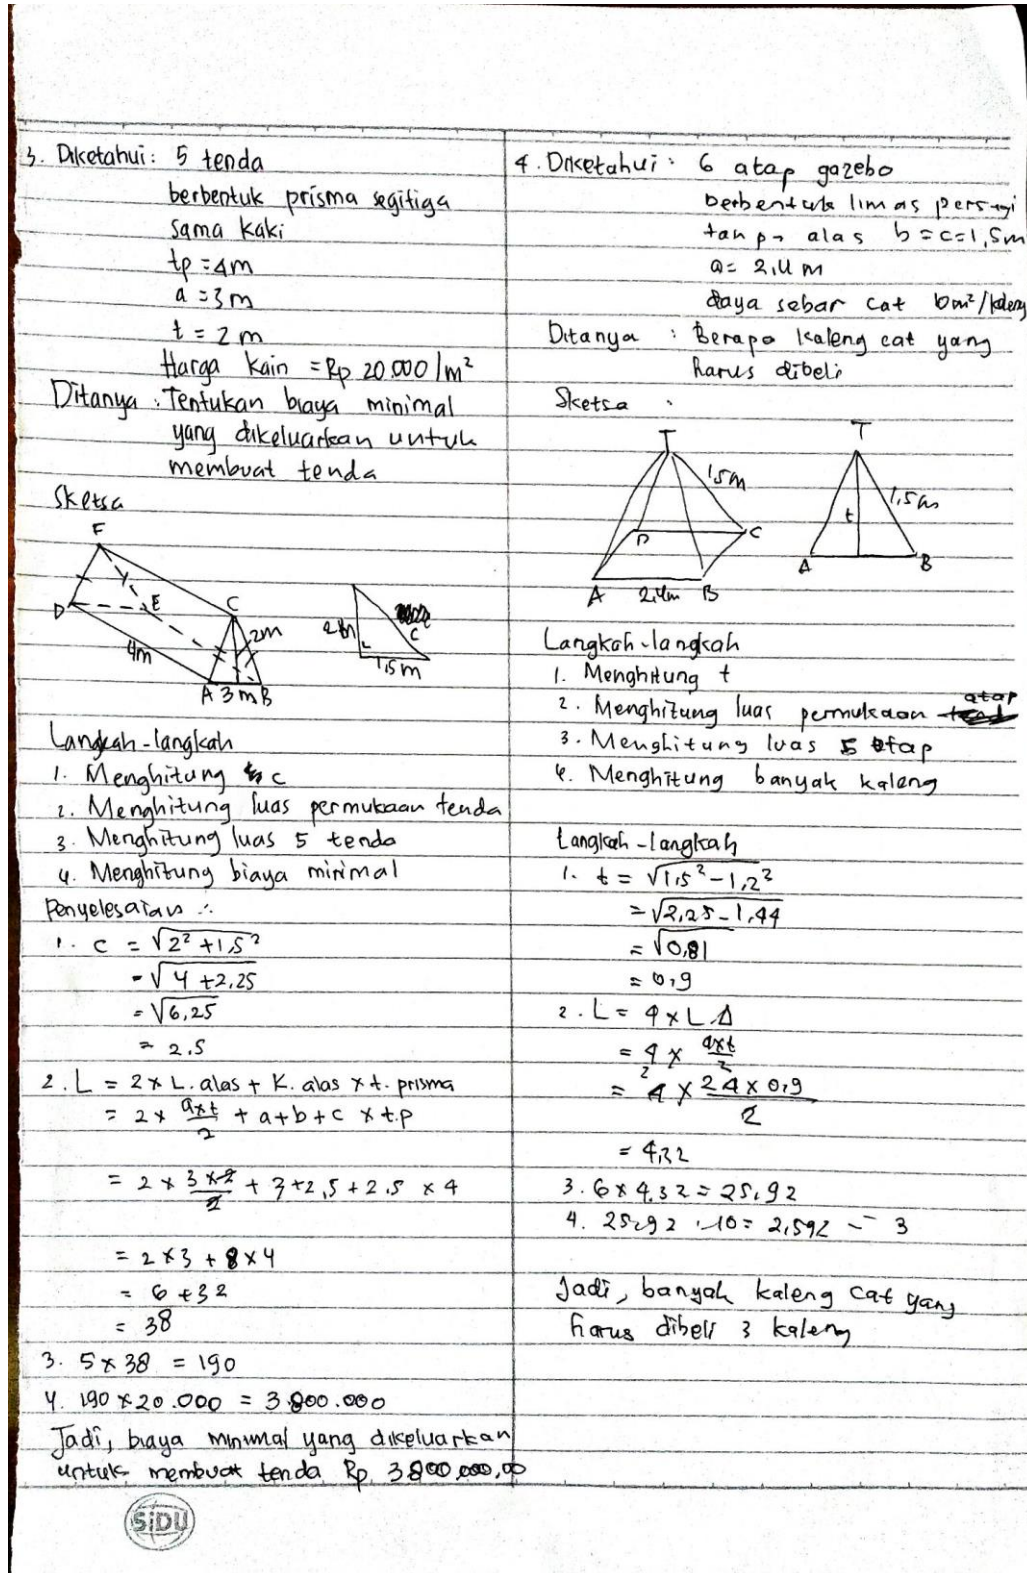 3. Diketahui: 5 tenda
berbentuk prisma segitiga
sama kaki
tp = 4m
a = 3m
t = 2m
Harga kain = Rp 20.000/m²
Ditanya : Tentukan biaya minimal
yang dikeluarkan untuk
membuat tenda
Sketsa
F
D
E
C
4m
2m
A 3 m B
2m
C
1,5m
Langkah-langkah
1. Menghitung c
2. Menghitung luas permukaan tenda
3. Menghitung luas 5 tenda
4. Menghitung biaya minimal
Penyelesaian :
1. c = √2² + 1,5²
= √4 + 2,25
= √6,25
= 2.5
2. L = 2 x L. alas + K. alas x t. prisma
= 2 x axt/2 + a+b+c x t.p
= 2 x 3x2/2 + 3+2,5+2.5 x 4
= 2 x 3 + 8 x 4
= 6 + 32
= 38
3. 5 x 38 = 190
4. 190 x 20.000 = 3.800.000
Jadi, biaya minimal yang dikeluarkan
untuk membuat tenda Rp. 3.800.000,00
SiDU
4. Diketahui : 6 atap gazebo
berbentuk limas persegi
tanpa alas b = c = 1,5m
a = 2,4 m
daya sebar cat
Ditanya : Berapa kaleng cat yang
harus dibeli
Sketsa :
T
1,5m
D
C
A 2,4m B
T
1,5m
t
A
B
Langkah-langkah
1. Menghitung t
2. Menghitung luas permukaan atap
3. Menghitung luas 5 atap
4. Menghitung banyak kaleng
Langkah-langkah
1. t = √1,5² - 1,2²
= √2,25 - 1,44
= √0,81
= 0,9
2. L = 4 x L Δ
= 4 x axt/2
= 4 x 24 x 0,9/2
= 4,32
3. 6 x 4.32 = 25,92
4. 25,92 : 10 = 2,592 - 3
Jadi, banyak kaleng cat yang
harus dibeli 3 kaleng